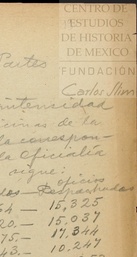 CENTRO DE
ESTUDIOS
DE HISTORIA
DE MEXICO
FUNDACIÓN
Carlos Slim
Partes
intencidad
cinas de la
la correspon-
la Oficialía
sigue:
oficios
Rezagados
64 — 15,325
20. — 15,037
75. — 17,344
43. — 10.247